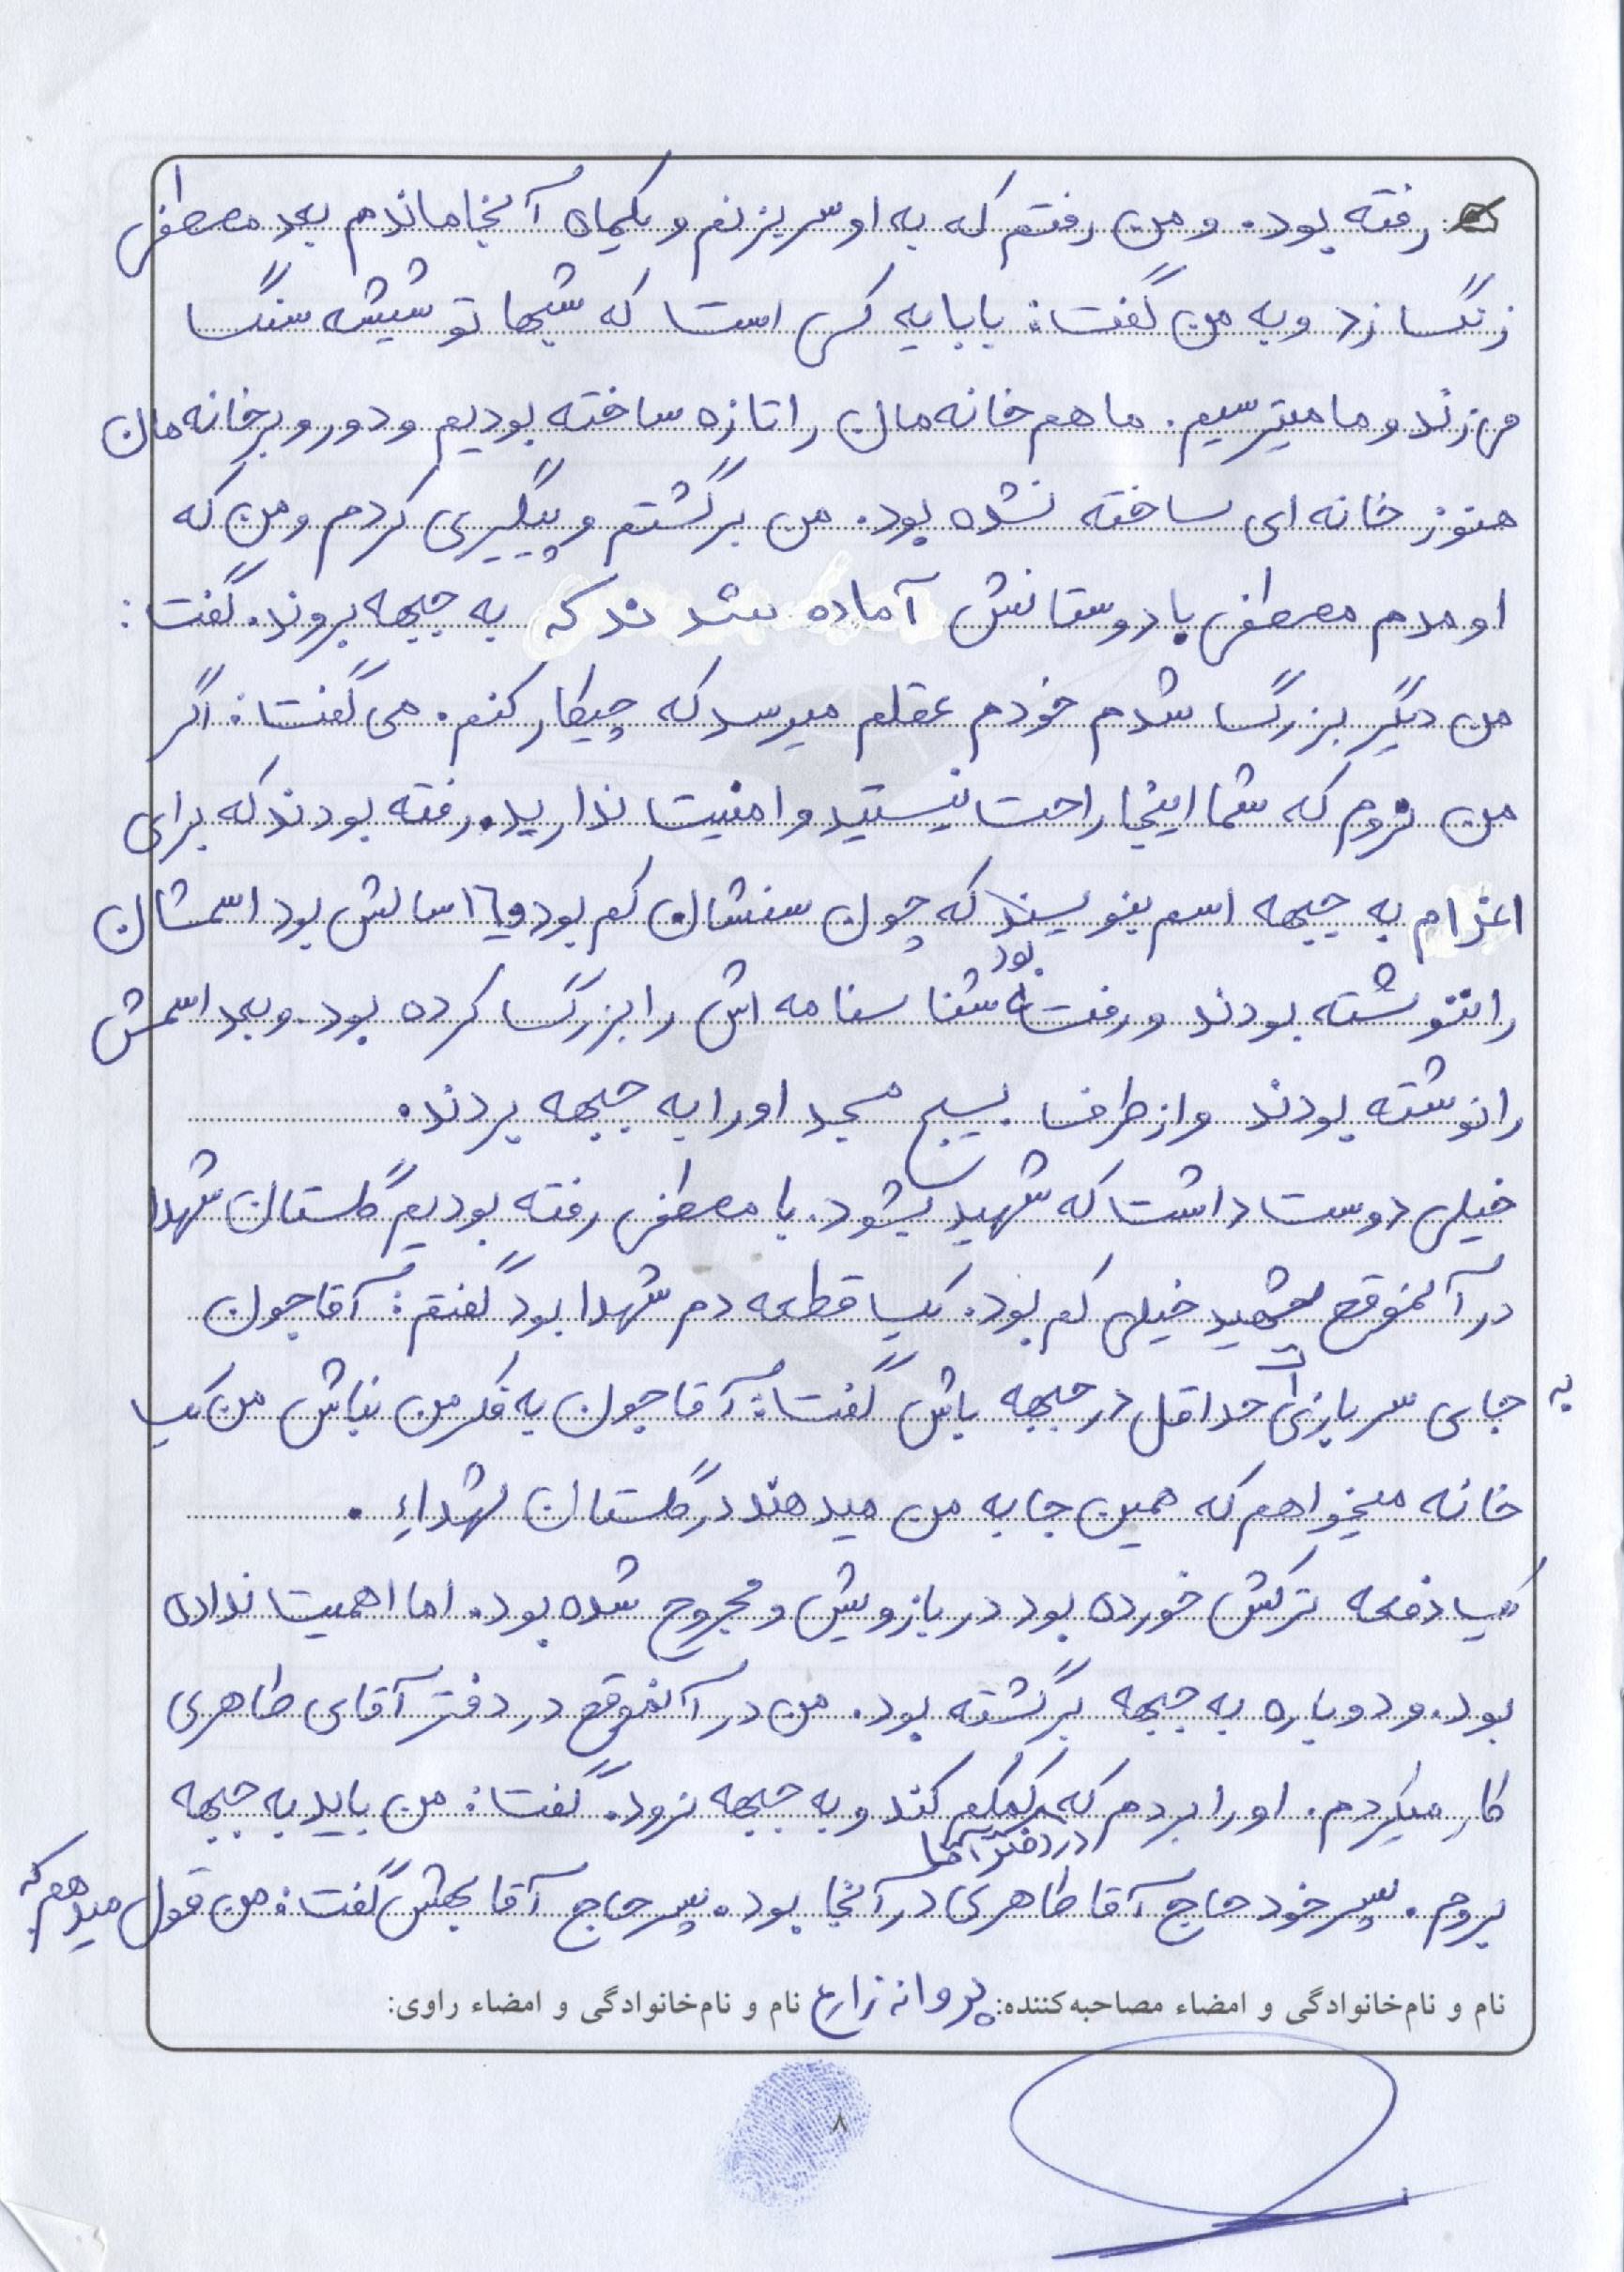 رفته بود. و من رفتم که به او سر بزنم و یکماه آنجا ماندم بعد مصطفی
زنگ زد و به من گفت: بابا یه کسی است که شبها تو شیشه سنگ
می‌زند و ما میترسیم. ما هم خانه مان را تازه ساخته بودیم و دور و بر خانه مان
هنوز خانه ای ساخته نشده بود. من برگشتم و پیگیری کردم و من که
اومدم مصطفی با دوستانش آماده شدند که به جبهه بروند. گفت:
من دیگر بزرگ شدم خودم عقلم میرسد که چیکار کنم. می گفت: اگر
من نروم که شما اینجا راحت نیستید و امنیت ندارید. رفته بودند که برای
اعزام به جبهه اسم بنویسند که چون سنشان کم بود و ۱۶ سالش بود اسمشان
را ننوشته بودند و رفته بود شناسنامه اش را بزرگ کرده بود. و بعد اسمش
را نوشته بودند و از طرف بسیج مسجد او را به جبهه بردند.
خیلی دوست داشت که شهید بشود. با مصطفی رفته بودیم گلستان شهدا
در آنموقع شهید خیلی کم بود. یک قطعه دم شهدا بود گفتم: آقا جون
به جای سربازی ات حداقل در جبهه باش گفت: آقا جون به فکر من نباش من یک
خانه میخواهم که همین جا به من میدهند در گلستان شهداء.
یک دفعه ترکش خورده بود در بازویش و مجروح شده بود. اما اهمیت نداده
بود. و دوباره به جبهه برگشته بود. من در آنموقع در دفتر آقای طاهری
کار میکردم. او را بردم که کمکم کند و به جبهه نرود. گفت: من باید به جبهه
بروم. پسر خود حاج آقا طاهری در دفتر آقا در آنجا بود. پسر حاج آقا بهش گفت: من قول میدهم که
نام و نام‌خانوادگی و امضاء مصاحبه‌کننده: پروانه زارع نام و نام‌خانوادگی و امضاء راوی:
۸